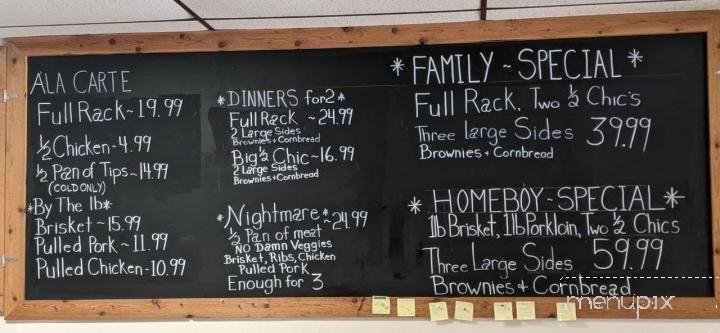 ALA CARTE
Full Rack~19.99
½ Chicken~4.99
½ Pan of Tips~14.99
(COLD ONLY)
*By The lb*
Brisket~15.99
Pulled Pork~11.99
Pulled Chicken-10.99
*DINNERS for2*
Full Rack ~24.99
2 Large Sides
Brownies+Cornbread
Big ½ Chic~16.99
2 Large Sides
Brownies+Cornbread
*Nightmare*~24.99
½ Pan of meat
NO Damn Veggies
Brisket, Ribs, Chicken
Pulled Pork
Enough for 3
* FAMILY~SPECIAL *
Full Rack, Two ½ Chic's
Three large Sides 39.99
Brownies+Cornbread
*HOMEBOY~SPECIAL*
1lb Brisket, 1lb Porkloin, Two ½ Chics
Three Large Sides 59.99
Brownies+Cornbread
menupix